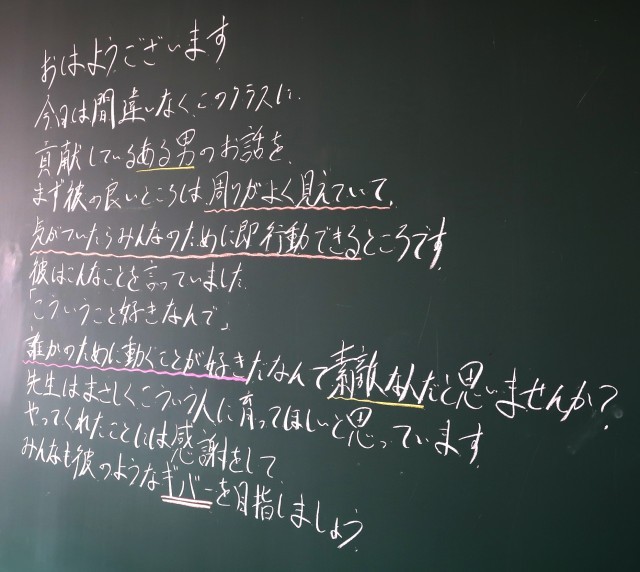 おはようございます
今日は間違いなく、このクラスに
貢献しているある男のお話を、
まず彼の良いところは周りがよく見えていて、
気がついたらみんなのために即行動できるところです
彼はこんなことを言っていました
「こういうこと好きなんで」
誰かのために動くことが好きだなんて素敵な人だと思いませんか?
先生はまさしくこういう人に育ってほしいと思っています
やってくれたことには感謝をして
みんなも彼のようなギバーを目指しましょう